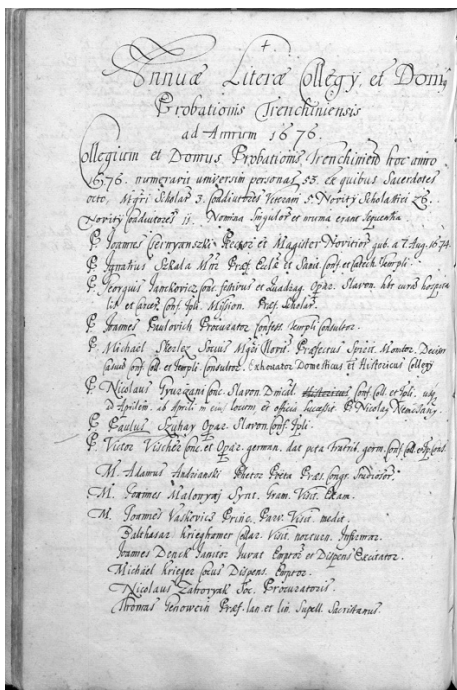 Annuæ Literæ Collegij et Domus
Probationis Trenchiniensis
ad Annum 1676.
Collegium et Domus Probationis Trenchiniensis hoc anno
1676. numeravit universim personas 53. ex quibus Sacerdotes
octo, Mgri Scholar 3. Coadiutores Veterani 5. Novitij Scholastici 26.
Novitij Coadiutores 11. Nomina singulor et munia erant sequentia.
P. Joannes Czernyanszki Rector et Magister Novitior gub. a 7 Aug. 1674.
P. Ignatius Szkala Præf. et Catech. Templi.
P. Georgius conc. festivus et Quadrag. Opær. Slavon.
lis et carcer. conf. Tpli. Mission. Præf. Scholar.
P. Joannes Pavlovich Procurator Confess. Templi Consultor.
P. Michael Skorlez Socius Mgri Præfectus Spirit. Monitor.
conf. Coll. et Templi. Consultor. Exhortator Domesticus et Historicus Collegij
P. Nicolaus conc. Slavon. Historicus conf. Coll. et Tpli. usq
ad Aprilem. ab Aprili in eius locum et officia successit P. Nicolaus Nemcsány.
P. Paulus Szuhay Opær. Slavon. Conf. Tpli.
P. Victor Vischer Conc. et Opær. german. germ. Conf. Coll.
M. Adamus Andrianski Rhetor Poeta Præs. Congr. Studiosor.
M. Joannes Malonyaj Synt. Gram. Visit. Exam.
M. Joannes Vaskovics Princ. Parv. Visit. medit.
Balthasar Krieghamer Cellar. Visit. nocturn. Infirmar.
Joannes Denck Janitor Emptor et Dispens Excitator.
Michael Krieger Socius Dispens. Emptor.
Nicolaus Zahoryak Soc. Procuratoris.
Thomas Genowein Præf. lan. et lin. Supell. Sacristanus.